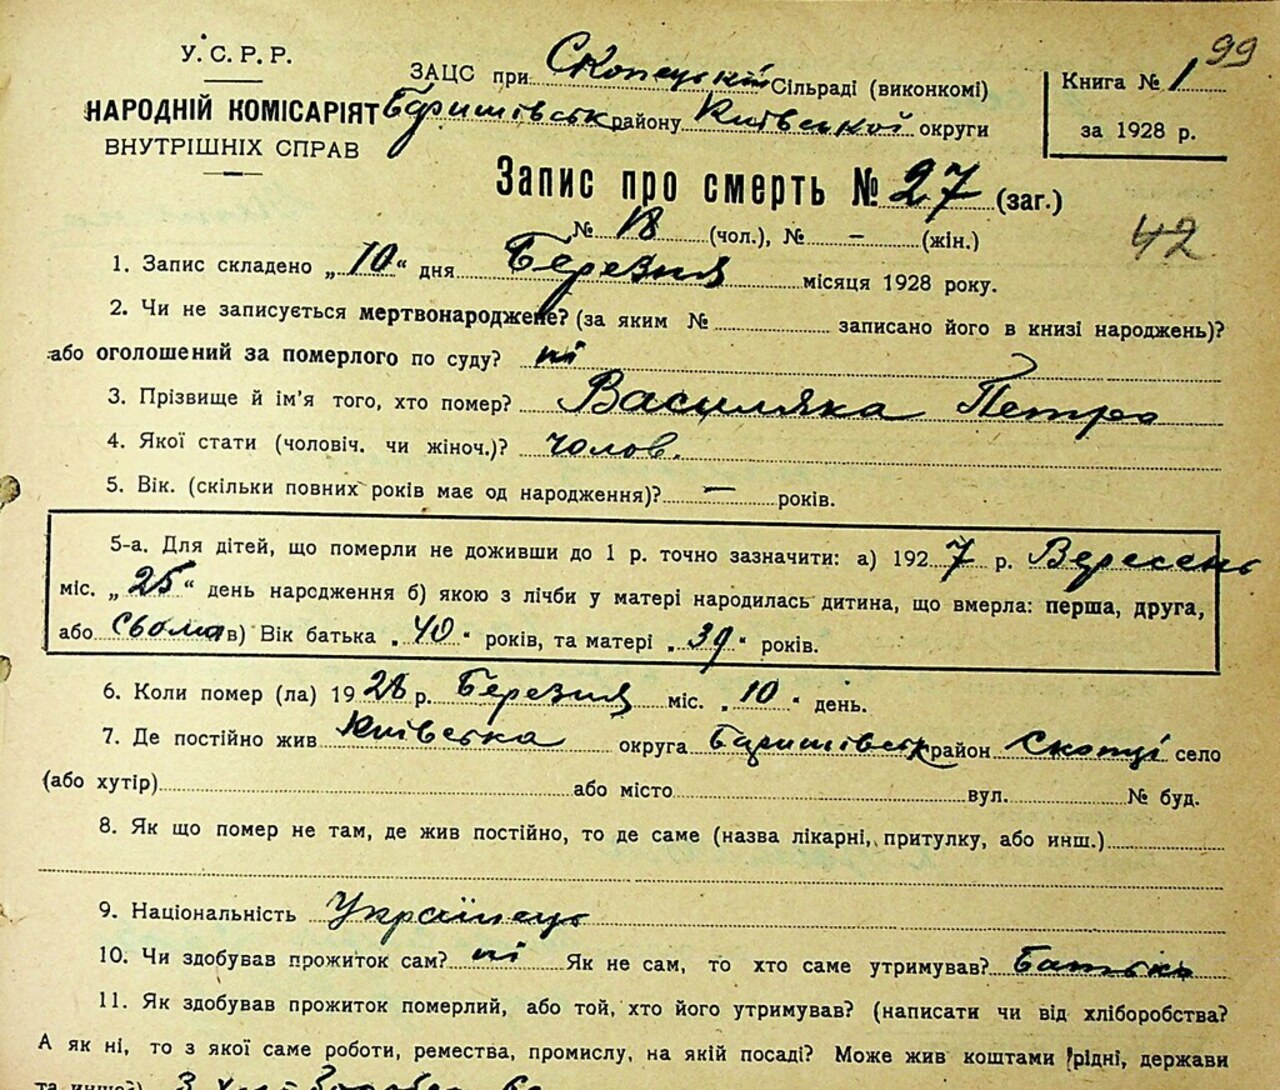 99
У.С.Р.Р.
НАРОДНІЙ КОМІСАРІЯТ
ВНУТРІШНІХ СПРАВ
ЗАЦС при Скопецькій Сільраді (виконкомі)
Баришівськ району Київської округи
Книга № 1
за 1928 р.
Запис про смерть № 27 (заг.)
№ 18 (чол.), № – (жін.)
42
1. Запис складено „10“ дня Березня місяця 1928 року.
2. Чи не записується мертвонароджене? (за яким № записано його в книзі народжень)?
або оголошений за померлого по суду? ні
3. Прізвище й ім'я того, хто помер? Василяка Петро
4. Якої стати (чоловіч. чи жіноч.)? чолов.
5. Вік. (скільки повних років має од народження)? — років.
5-а. Для дітей, що померли не доживши до 1 р. точно зазначити: а) 1927 р. Вересень
міс. „25“ день нарсдження б) якою з лічби у матері народилась дитина, що вмерла: перша, друга,
або сьома в) Вік батька „40“ років, та матері „39“ років.
6. Коли помер (ла) 1928 р. Березня міс. „10“ день.
7. Де постійно жив Київська округа Баришівськ район Скопці село
(або хутір) або місто вул. № буд.
8. Як що помер не там, де жив постійно, то де саме (назва лікарні, притулку, або инш.)
9. Національність Українець
10. Чи здобував прожиток сам? ні Як не сам, то хто саме утримував? Батько
11. Як здобував прожиток померлий, або той, хто його утримував? (написати чи від хліборобства?
А як ні, то з якої саме роботи, ремества, промислу, на якій посаді? Може жив коштами рідні, держави
та инше?)